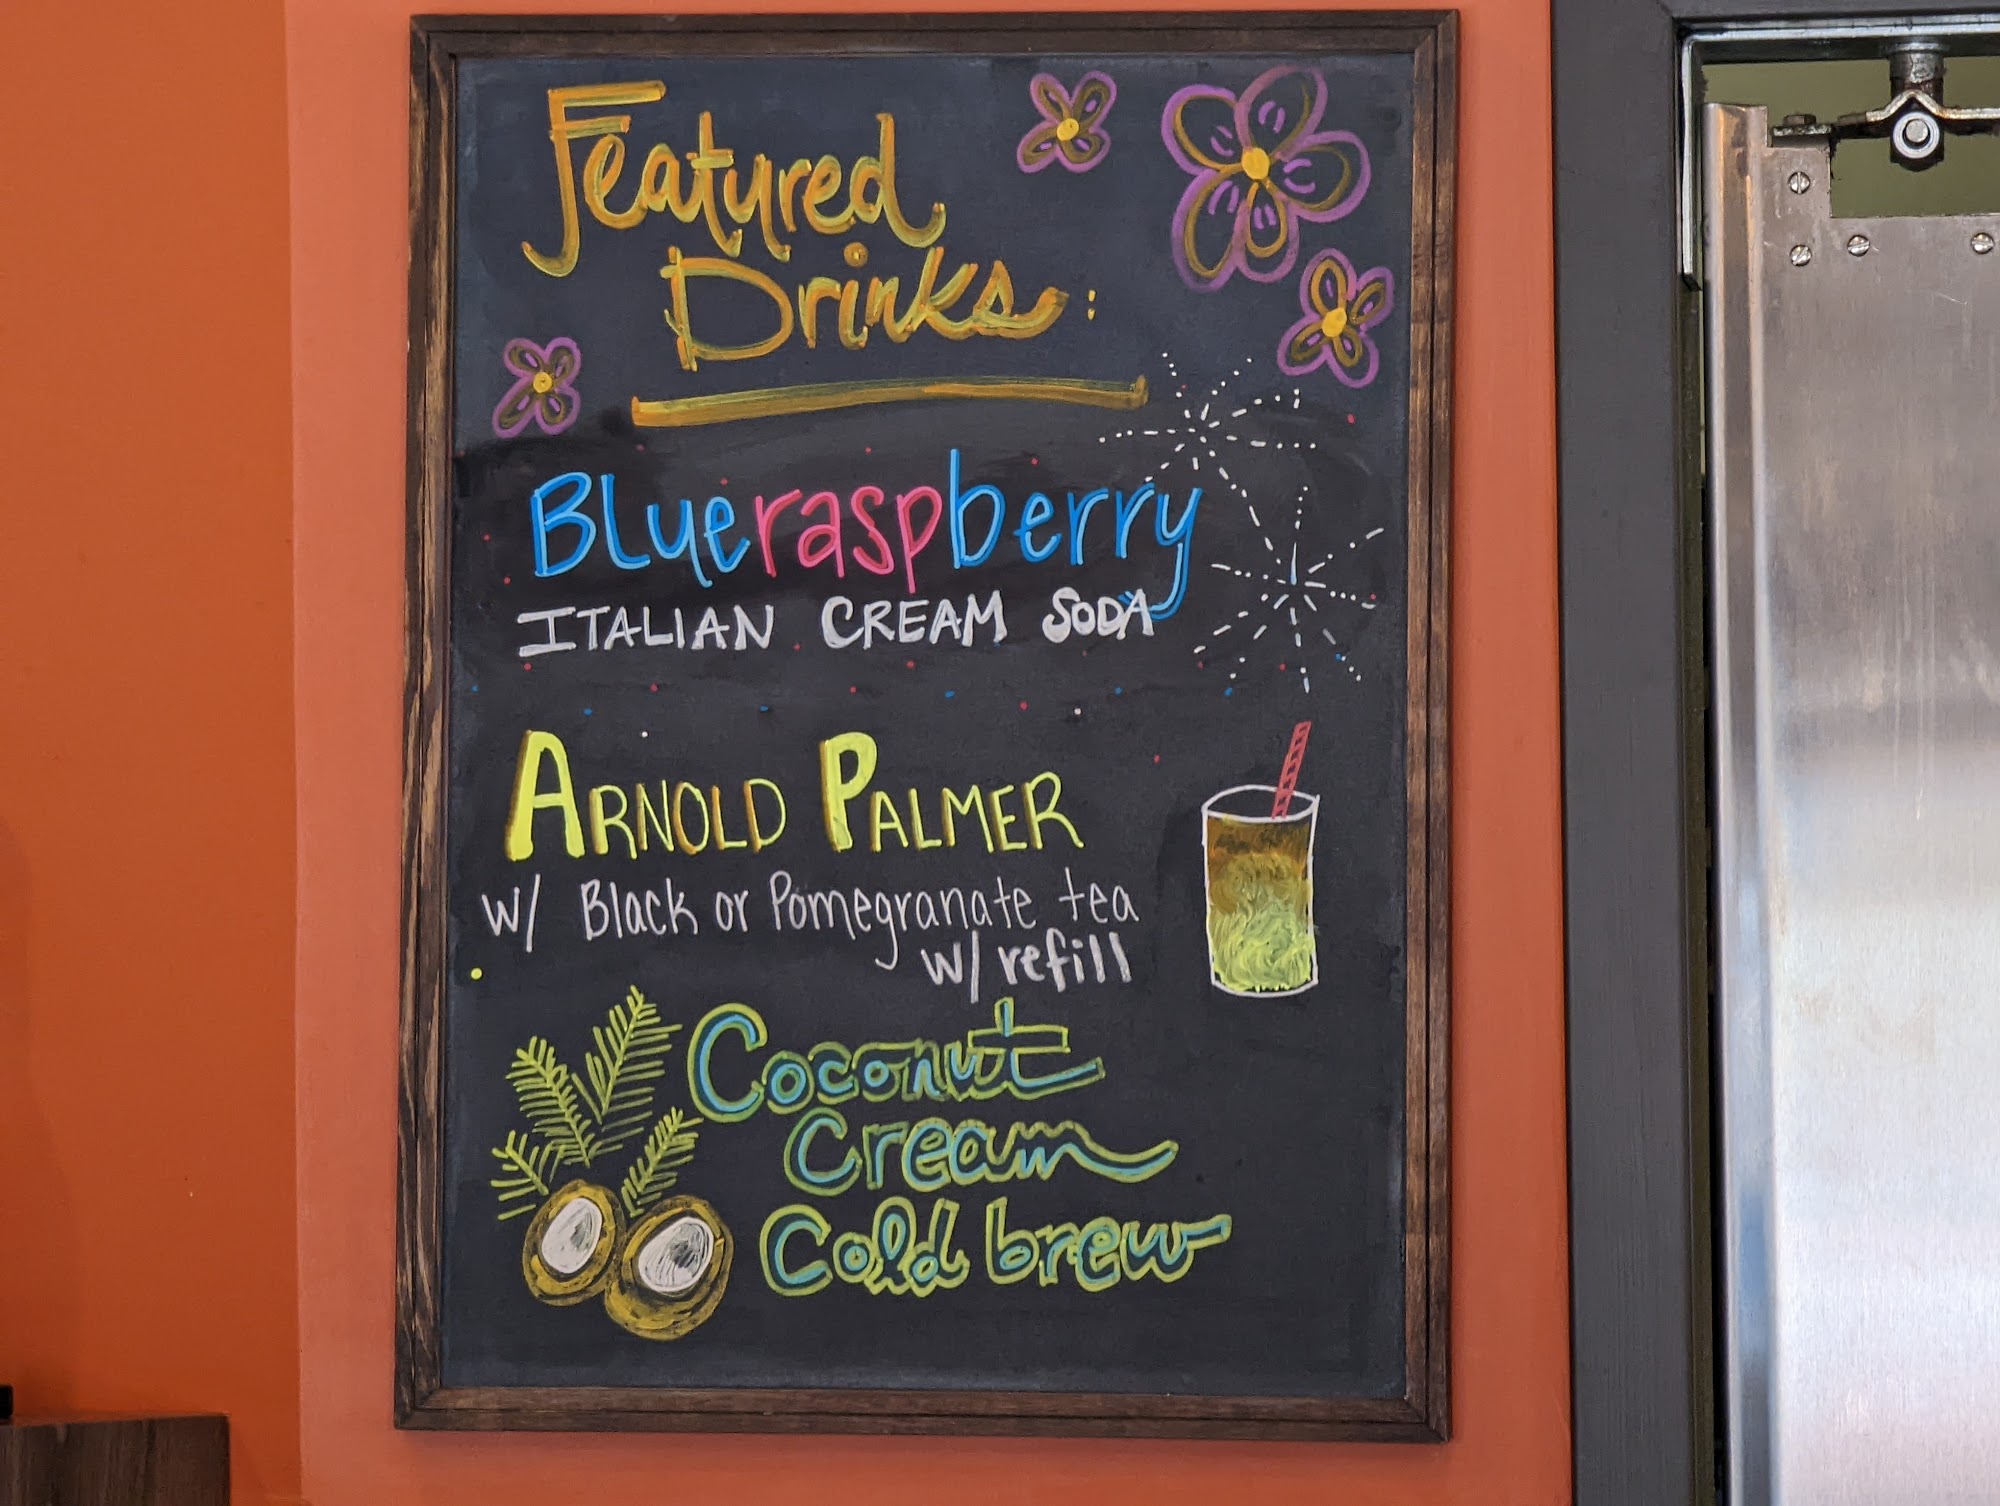 Featured
Drinks:
Blueraspberry
ITALIAN CREAM SODA
ARNOLD PALMER
w/ Black or Pomegranate tea
w/ refill
Coconut
Cream
Cold brew